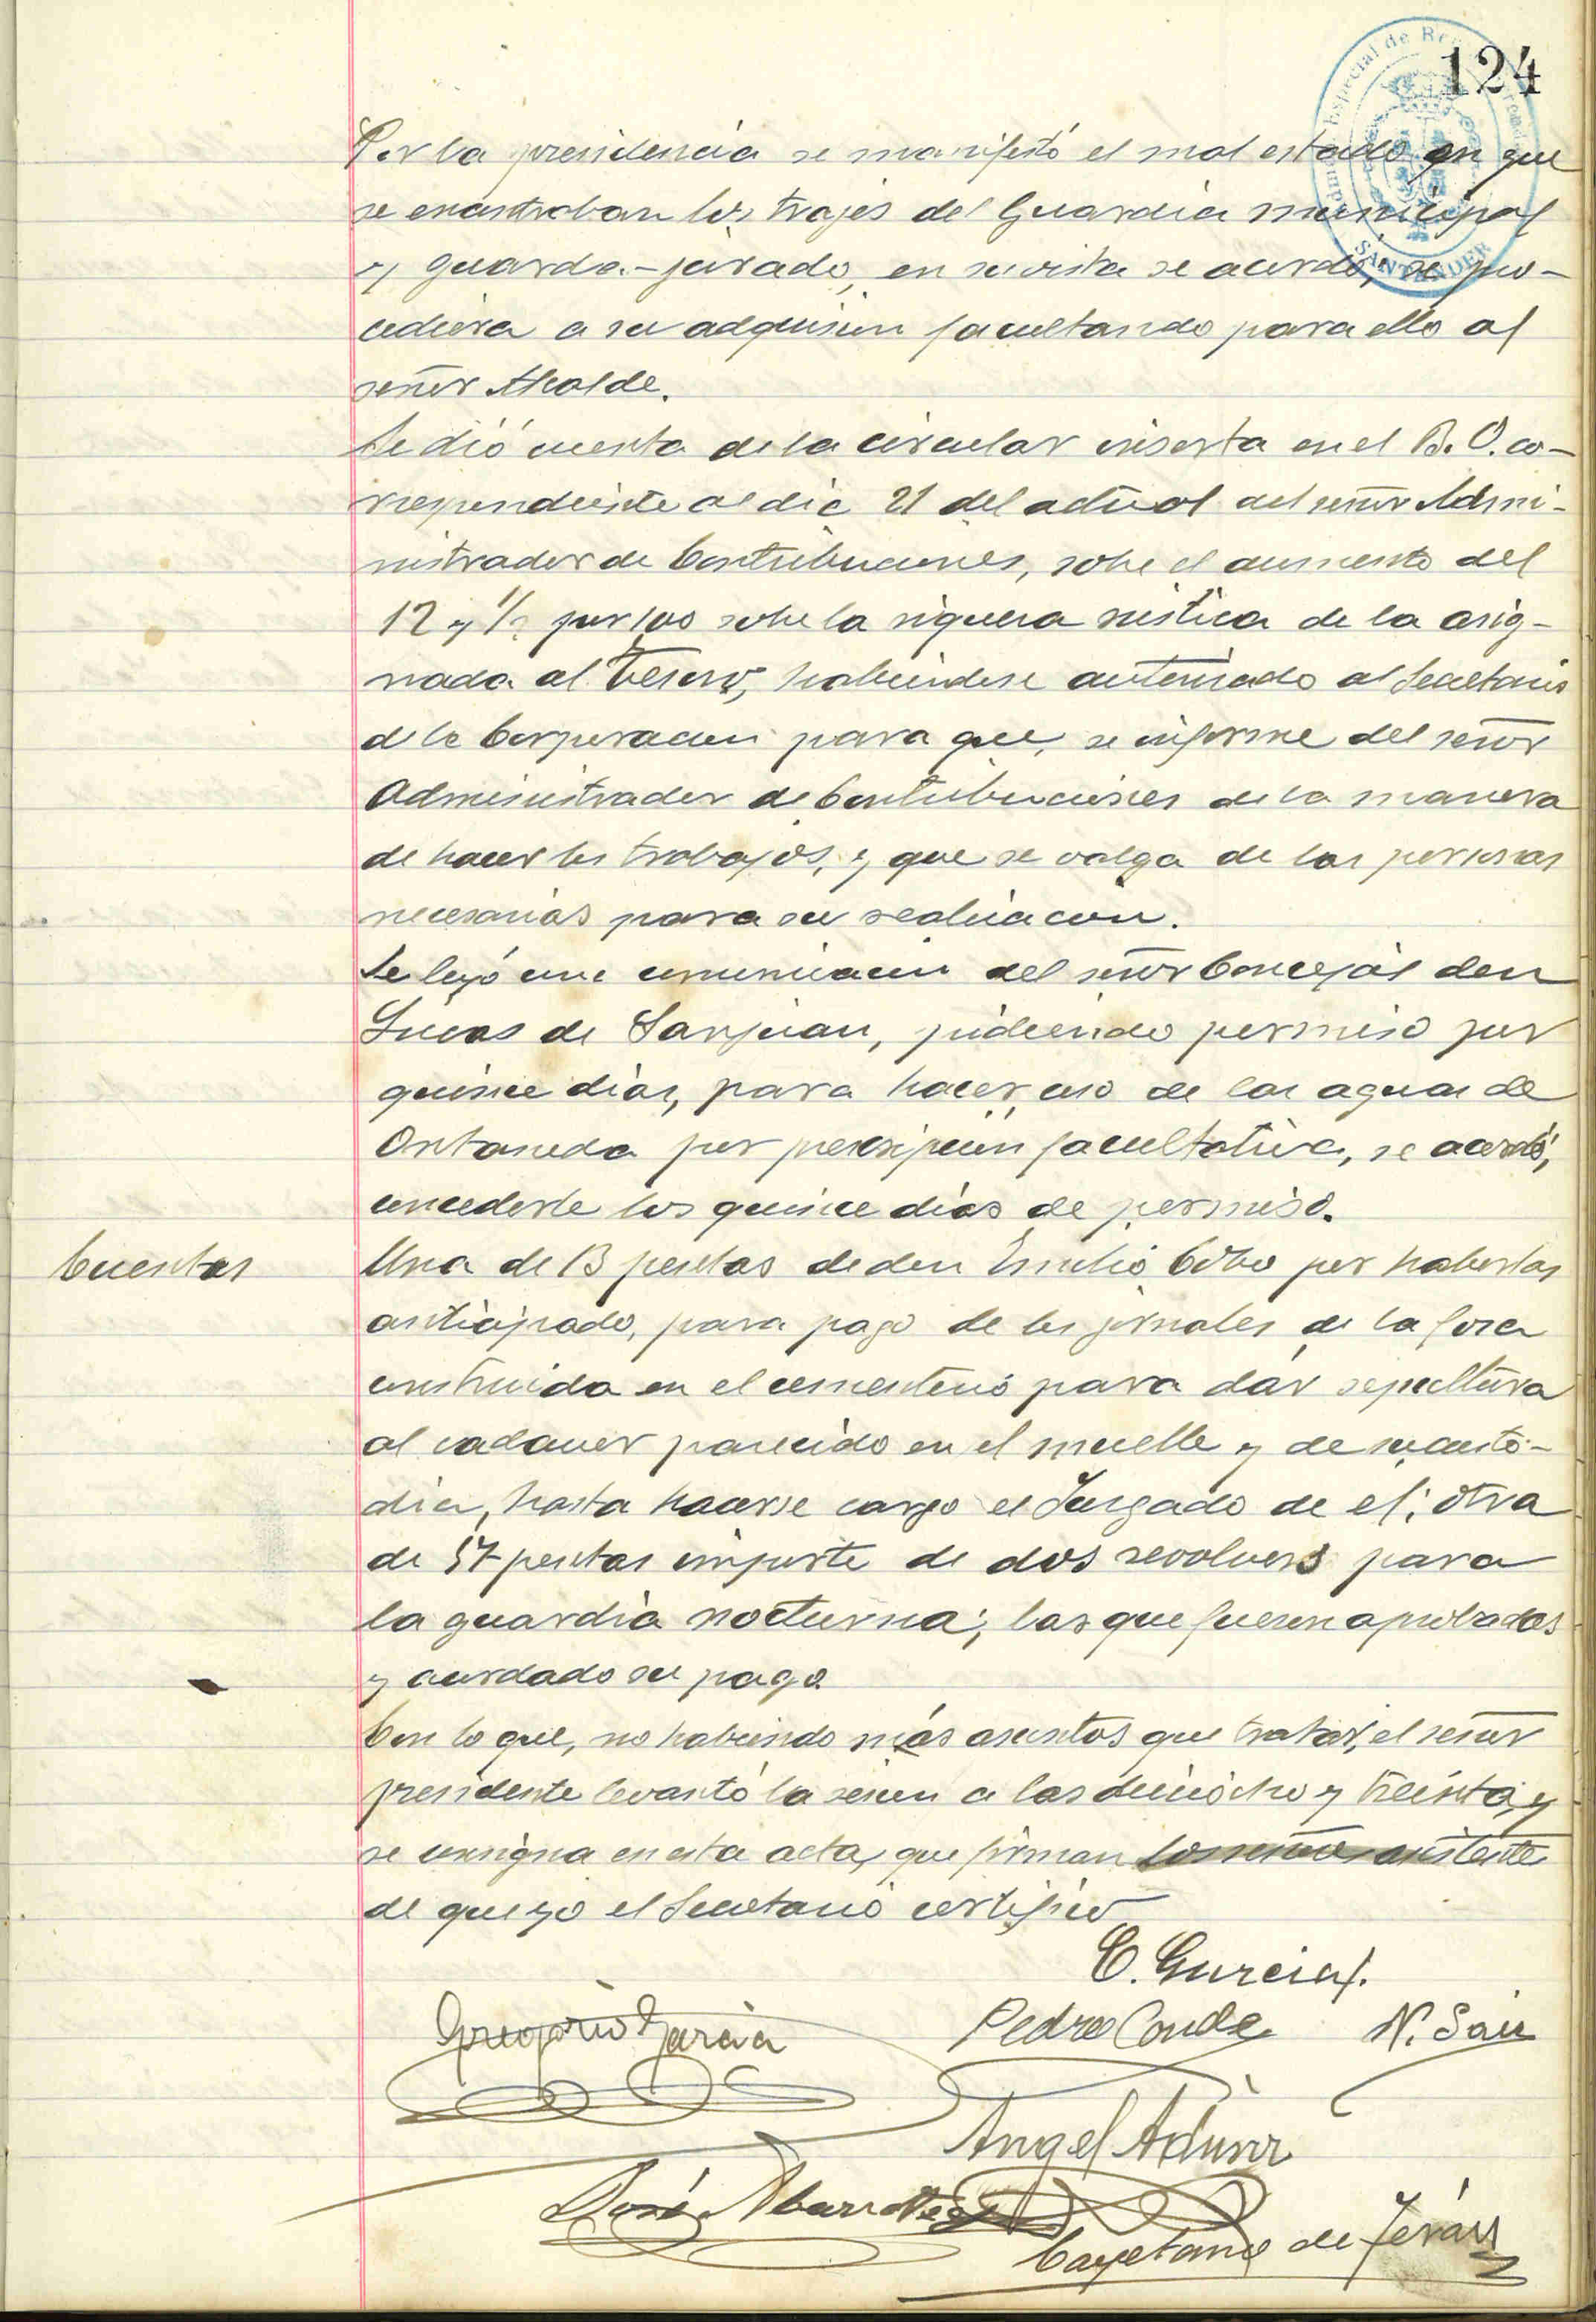 124
Por la presidencia se manifestó el mal estado en que
se encontraban los trajes del Guardia municipal
y guarda-jurado, en su vista se acordó, se pro-
cediera a su adquision facultando para ello al
señor Alcalde.
Se dió cuenta de la circular inserta en el B. O. co-
rrespondiente al dia 21 del actual del señor Admi-
nistrador de Contribuciones, sobre el aumento del
12 y 1/2 por 100 sobre la riqueza rústica de la asig-
nada al Tesoro, habiendose autorizado al Secretario
de la Corporacion para que, se informe del señor
Administrador de Contribuciones de la manera
de hacer los trabajos, y que se valga de las personas
necesarias para su realizacion.
Se leyó una comunicacion del señor Concejal don
Lucas de Sanjuan, pidiendo permiso por
quince dias, para hacer uso de las aguas de
Ontaneda por prescripción facultativa, se acordó,
concederle los quince dias de permiso.
Cuentas
Una de 13 pesetas de don Emilio Cobo por haberlas
anticipado, para pago de los jornales de la fosa
construida en el cementerio para dár sepultura
al cadaver parecido en el muelle y de su custo-
dia, hasta hacerse cargo el Juzgado de el; otra
de 57 pesetas importe de dos revolvers para
la guardia nocturna; las que fueron aprobadas
y acordado su pago.
Con lo que, no habiendo más asuntos que tratar, el señor
presidente levantó la sesion a las dieciocho y treinta, y
se consigna en esta acta, que firman los señores asistentes
de que yo el Secretario certifico
C. Garcia
Gregorio Garcia
Pedro Conde
N. Saiz
Angel
José
Cayetano de Terán
Administración Especial de Rentas
SANTANDER